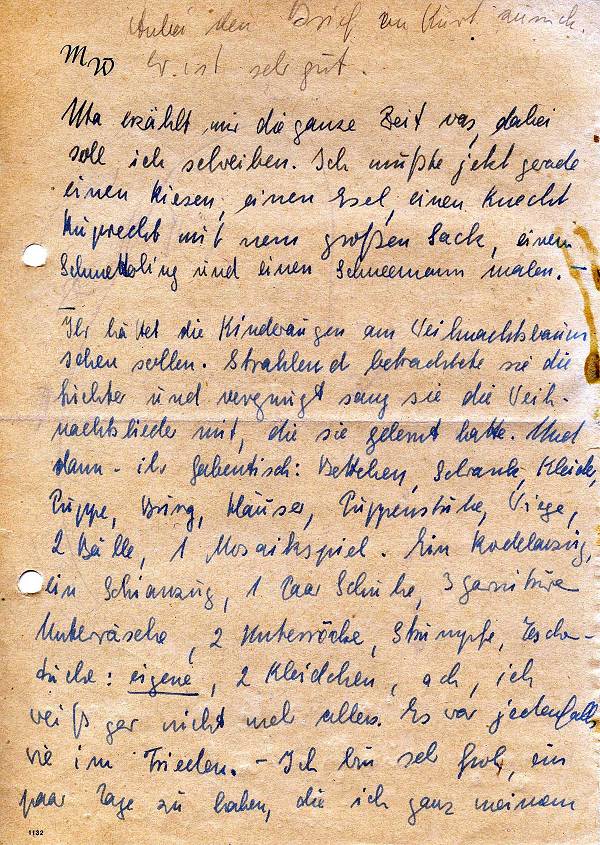 Anbei den Brief an Kurt zurück.
Er ist sehr gut.
Uta erzählt mir die ganze Zeit was, dabei
soll ich schreiben. Ich mußte jetzt gerade
einen Riesen, einen Esel, einen Knecht
Ruprecht mit nem großen Sack, einen
Schmetterling und einen Schneemann malen. –
Ihr hättet die Kinderaugen am Weihnachtsbaum
sehen sollen. Strahlend betrachtete sie die
Lichter und vergnügt sang sie die Weih-
nachtslieder mit, die sie gelernt hatte. Und
dann – ihr Gabentisch: Bettchen, Schrank, Kleider,
Puppe, Burg, Häuser, Puppenstube, Wiege,
2 Bälle, 1 Mosaikspiel. Ein Rodelanzug,
ein Schianzug, 1 Paar Schuhe, 3 Garnituren
Unterwäsche, 2 Unterröcke, Strümpfe, Tasche-
tücher: eigene, 2 Kleidchen, ach, ich
weiß gar nicht mehr alles. Es war jedenfalls
wie im Frieden. – Ich bin sehr froh, ein
paar Tage zu haben, die ich ganz meinem
1132